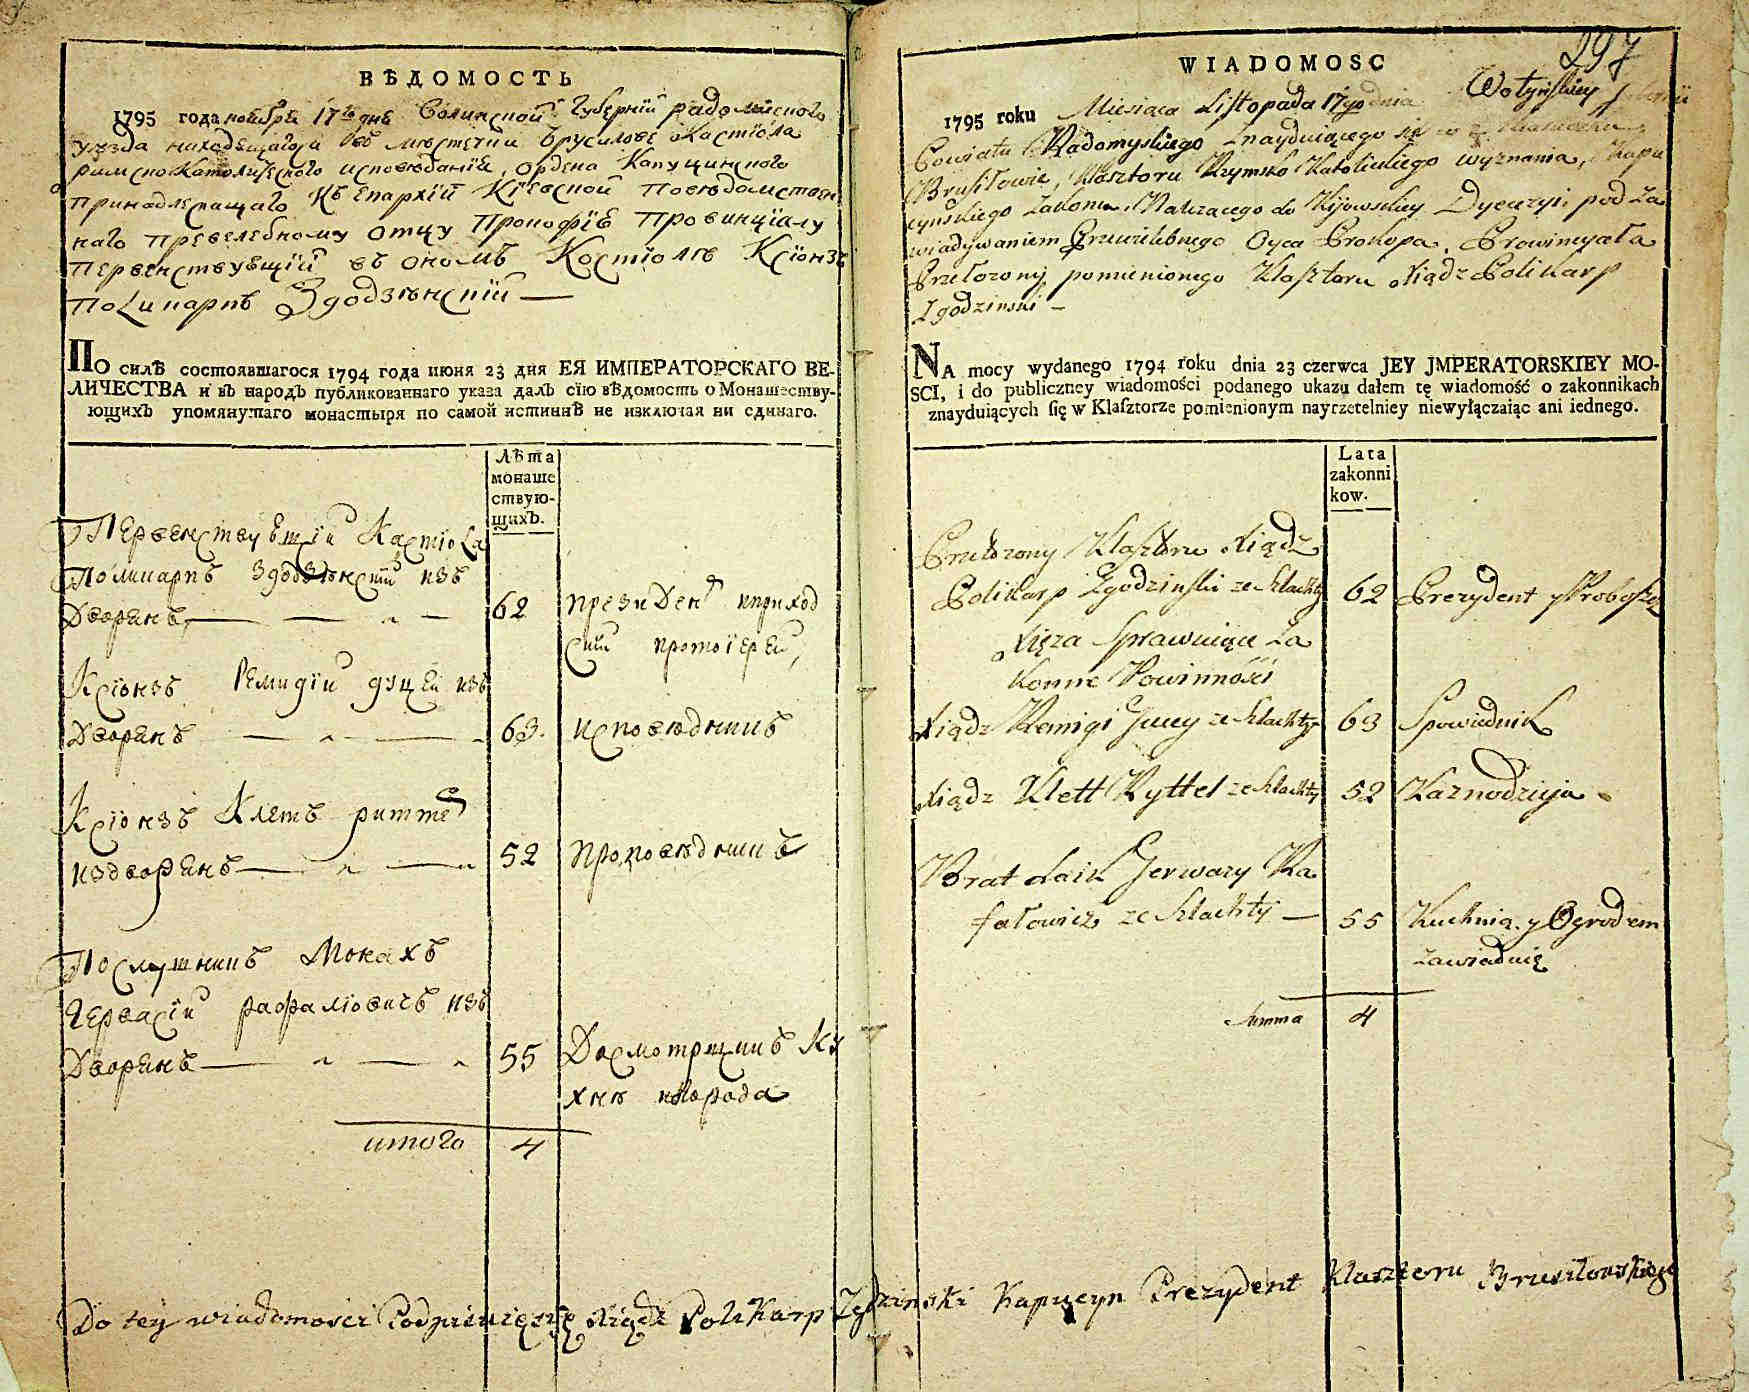 ВѢДОМОСТЬ
1795 года ноября 17го дня Волинской Губернїй радомисного
уезда находящагоя въ местечки Брусилове Кастїола
римскокатолического исповѣданїй, ордена Капуцинского
принадлежащаго Къ Епархїй Кїевской повѣдомствен
наго превелебному отцу Прокофїю Провинцїалу
первенствующїй въ ономъ Костїолѣ Ксїонзъ
Поликарпъ Здодзѣнскїй —
По силѣ состоявшагося 1794 года июня 23 дня ЕЯ ИМПЕРАТОРСКАГО ВЕ-
ЛИЧЕСТВА и въ народъ публикованнаго указа далъ сїю вѣдомость о Монашеству-
ющихъ упомянутаго монастыря по самой истиннѣ не изключая ни единаго.
Лѣта
монаше
ствую-
щихъ.
Первенствующїй Кастїола
Поликарпъ Здодзѣнскїй изъ
Дворянъ — — — 62 президент иприход
скїй протоїерей,
Ксїонзъ Ремидїй дуцей изъ
Дворянъ — — 63. исповѣдникъ
Ксїонзъ Клетъ риттель
издворянъ — — 52 проповѣдникъ
Послушникъ Монахъ
Гервасїй рафаловичъ изъ
Дворянъ — — 55 Досмотрщикъ Ку
хнѣ иогорода
итого 4
297
WIADOMOSC
1795 roku Miesiąca Listopada 17go dnia Wołyńskiey
Powiatu Radomyskiego Znayduiącego się w
Brusiłowie, Klasztoru Rzymsko Katolickiego wyznania, Kapu
cynskiego Zakonu, Nalezącego do Kijowskiey Dyecezyi pod Za
wiadywaniem Przewielebnego Oyca Prokopa, Prowincyała
Przełozony pomienionego Klasztoru Xiądz Polikarp
Zgodzinski —
NA mocy wydanego 1794 roku dnia 23 czerwca JEY JMPERATORSKIEY MO-
SCI, i do publiczney wiadomości podanego ukazu dałem tę wiadomość o zakonnikach
znayduiących się w Klasztorze pomienionym nayrzetelniey niewyłączaiąc ani iednego.
Lata
zakonni
kow.
Przełozony Klasztoru Xiądz
Polikarp Zgodzinski ze Szlachty 62 Prezydent y Proboszcz
Xięza Sprawuiący Za
konne Powinności
Xiądz Remigi Jucey ze Szlachty 63 Spowiednik
Xiądz Klett Ryttel ze Szlachty 52 Kaznodzieja
Brat Laik Jerwazy Ra
fałowicz ze Szlachty — 55 Kuchnią y Ogrodem
Zawiaduię
Summa 4
Do tey wiadomosci Podpisuię się Xiądz Polikarp Zgodzinski Kapucyn Prezydent Klasztoru Brusiłowskiego